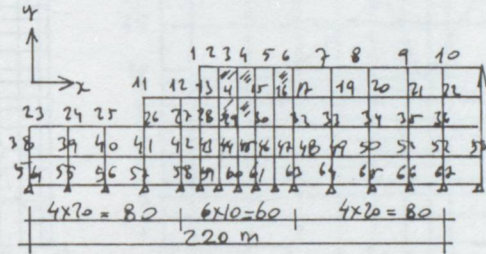 y
1 2 3 4 5 6 7 8 9 10
x 11 12 13 4 15 16 17 19 20 21 22
23 24 25 26 27 28 29 30 32 33 34 35 36
38 39 40 41 42 43 44 45 46 47 48 49 50 51 52
54 55 56 57 58 59 60 61 63 64 65 66 67
4x20=80 6x10=60 4x20=80
220 m